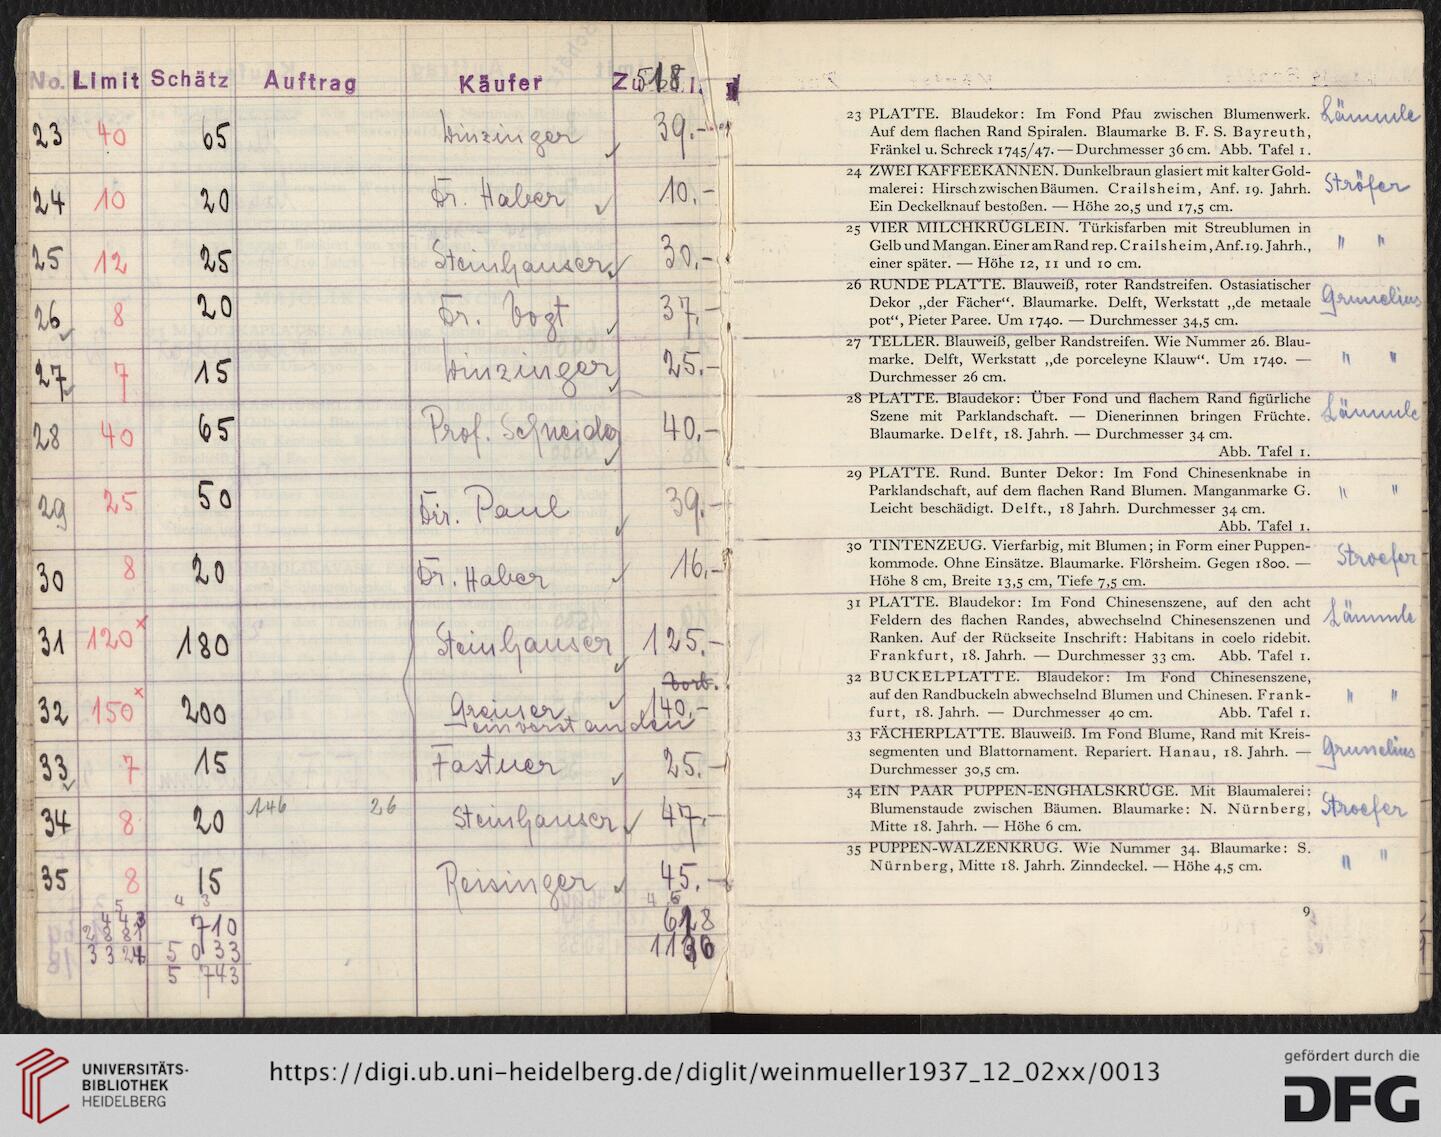 No. Limit Schätz Auftrag Käufer Zu 518
23 40 65 Winzinger 39.-
24 10 20 Dr. Haber 10.-
25 12 25 Steinhauser 30.-
26 8 20 Dr. Vogt 37.-
27 7 15 Winzinger 25.-
28 40 65 Prof. Schneider 40.-
29 25 50 Dir. Paul 39.-
30 8 20 Dr. Haber 16.-
31 120 x 180 Steinhauser 125.-
Vorb.
32 150 x 200 Greiner 140.-
einverstanden
33 7 15 Fastner 25.-
34 8 20 146 26 Steinhauser 47.-
35 8 15 Reisinger 45.-
710
5 033
5 743
23 PLATTE. Blaudekor: Im Fond Pfau zwischen Blumenwerk. Lämmle
Auf dem flachen Rand Spiralen. Blaumarke B. F. S. Bayreuth,
Fränkel u. Schreck 1745/47. — Durchmesser 36 cm. Abb. Tafel 1.
24 ZWEI KAFFEEKANNEN. Dunkelbraun glasiert mit kalter Gold-
malerei: Hirsch zwischen Bäumen. Crailsheim, Anf. 19. Jahrh. Ströfer
Ein Deckelknauf bestoßen. — Höhe 20,5 und 17,5 cm.
25 VIER MILCHKRÜGLEIN. Türkisfarben mit Streublumen in
Gelb und Mangan. Einer am Rand rep. Crailsheim, Anf. 19. Jahrh., " "
einer später. — Höhe 12, 11 und 10 cm.
26 RUNDE PLATTE. Blauweiß, roter Randstreifen. Ostasiatischer
Dekor „der Fächer“. Blaumarke. Delft, Werkstatt „de metaale Grunelius
pot“, Pieter Paree. Um 1740. — Durchmesser 34,5 cm.
27 TELLER. Blauweiß, gelber Randstreifen. Wie Nummer 26. Blau-
marke. Delft, Werkstatt „de porceleyne Klauw“. Um 1740. — " "
Durchmesser 26 cm.
28 PLATTE. Blaudekor: Über Fond und flachem Rand figürliche
Szene mit Parklandschaft. — Dienerinnen bringen Früchte. Lämmle
Blaumarke. Delft, 18. Jahrh. — Durchmesser 34 cm.
Abb. Tafel 1.
29 PLATTE. Rund. Bunter Dekor: Im Fond Chinesenknabe in
Parklandschaft, auf dem flachen Rand Blumen. Manganmarke G. " "
Leicht beschädigt. Delft., 18 Jahrh. Durchmesser 34 cm.
Abb. Tafel 1.
30 TINTENZEUG. Vierfarbig, mit Blumen; in Form einer Puppen-
kommode. Ohne Einsätze. Blaumarke. Flörsheim. Gegen 1800. — Stroefer
Höhe 8 cm, Breite 13,5 cm, Tiefe 7,5 cm.
31 PLATTE. Blaudekor: Im Fond Chinesenszene, auf den acht
Feldern des flachen Randes, abwechselnd Chinesenszenen und Lämmle
Ranken. Auf der Rückseite Inschrift: Habitans in coelo ridebit.
Frankfurt, 18. Jahrh. — Durchmesser 33 cm. Abb. Tafel 1.
32 BUCKELPLATTE. Blaudekor: Im Fond Chinesenszene,
auf den Randbuckeln abwechselnd Blumen und Chinesen. Frank- " "
furt, 18. Jahrh. — Durchmesser 40 cm. Abb. Tafel 1.
33 FÄCHERPLATTE. Blauweiß. Im Fond Blume, Rand mit Kreis-
segmenten und Blattornament. Repariert. Hanau, 18. Jahrh. — Grunelius
Durchmesser 30,5 cm.
34 EIN PAAR PUPPEN-ENGHALSKRÜGE. Mit Blaumalerei:
Blumenstaude zwischen Bäumen. Blaumarke: N. Nürnberg, Stroefer
Mitte 18. Jahrh. — Höhe 6 cm.
35 PUPPEN-WALZENKRUG. Wie Nummer 34. Blaumarke: S. " "
Nürnberg, Mitte 18. Jahrh. Zinndeckel. — Höhe 4,5 cm.
9
UNIVERSITÄTS-
BIBLIOTHEK
HEIDELBERG
https://digi.ub.uni-heidelberg.de/diglit/weinmueller1937_12_02xx/0013
gefördert durch die
DFG